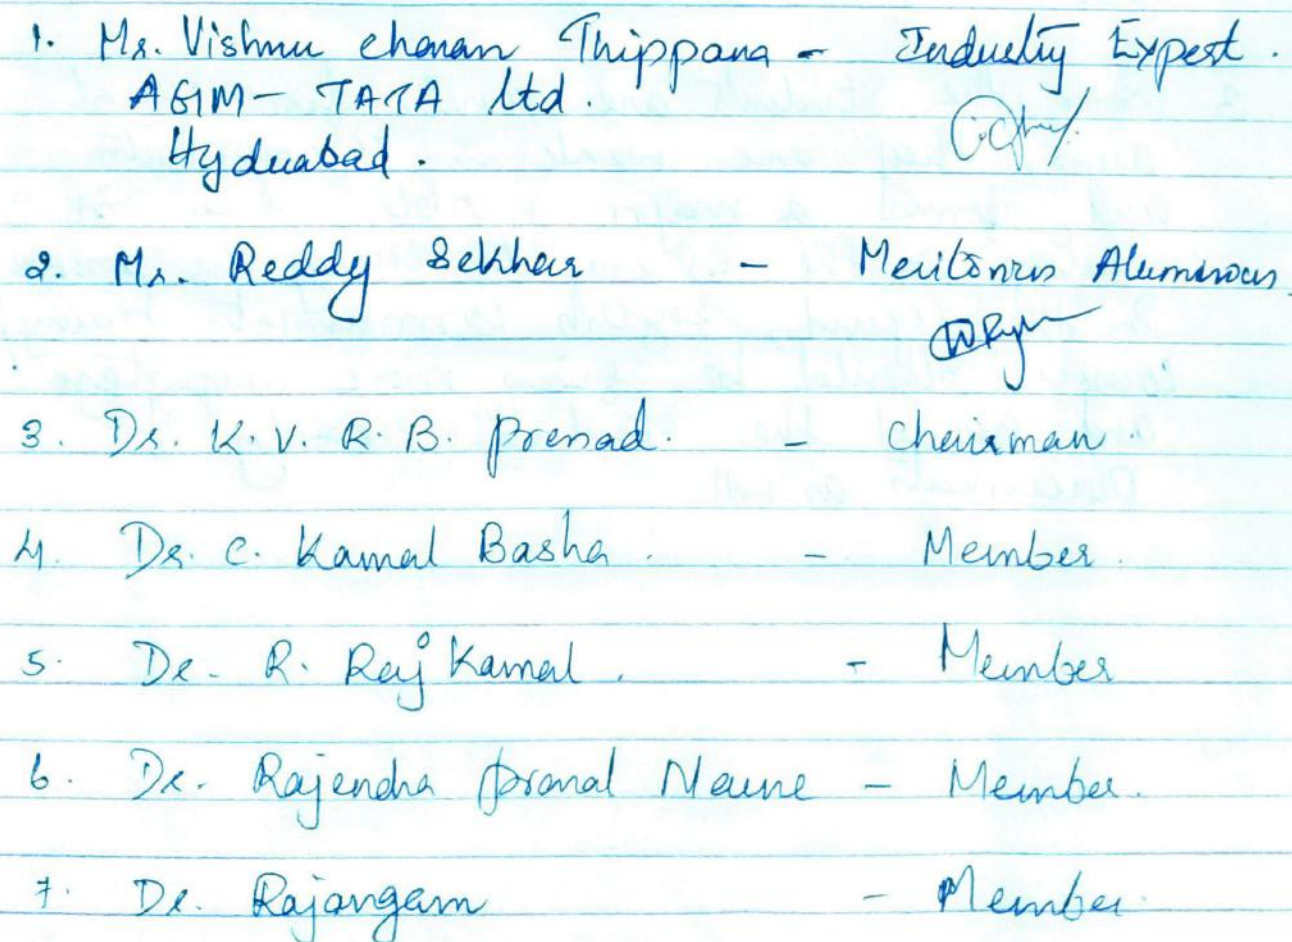 1. Mr. Vishnu charan Thippana - Industry Expert.
AGM - TATA ltd.
Hyderabad.
2. Mr. Reddy Sekhar - Meritorious Alumnous
3. Dr. K. V. R. B. prasad. - Chairman.
4. Dr. C. Kamal Basha. - Member.
5. Dr. R. Raj Kamal. - Member
6. Dr. Rajendra prasad - Member.
7. Dr. Rajangam - Member.